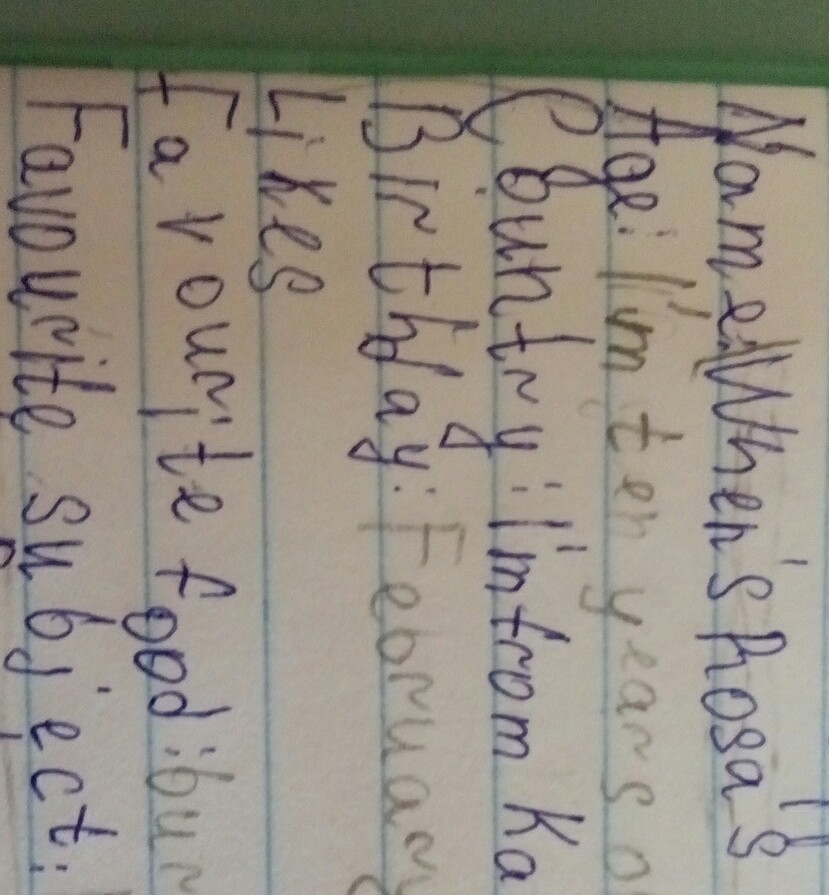 Name: When's Rosa's
Age: I'm ten years o
Country: I'm from Ka
Birthday: Februar
Likes
Favourite food: bur
Favourite subject: